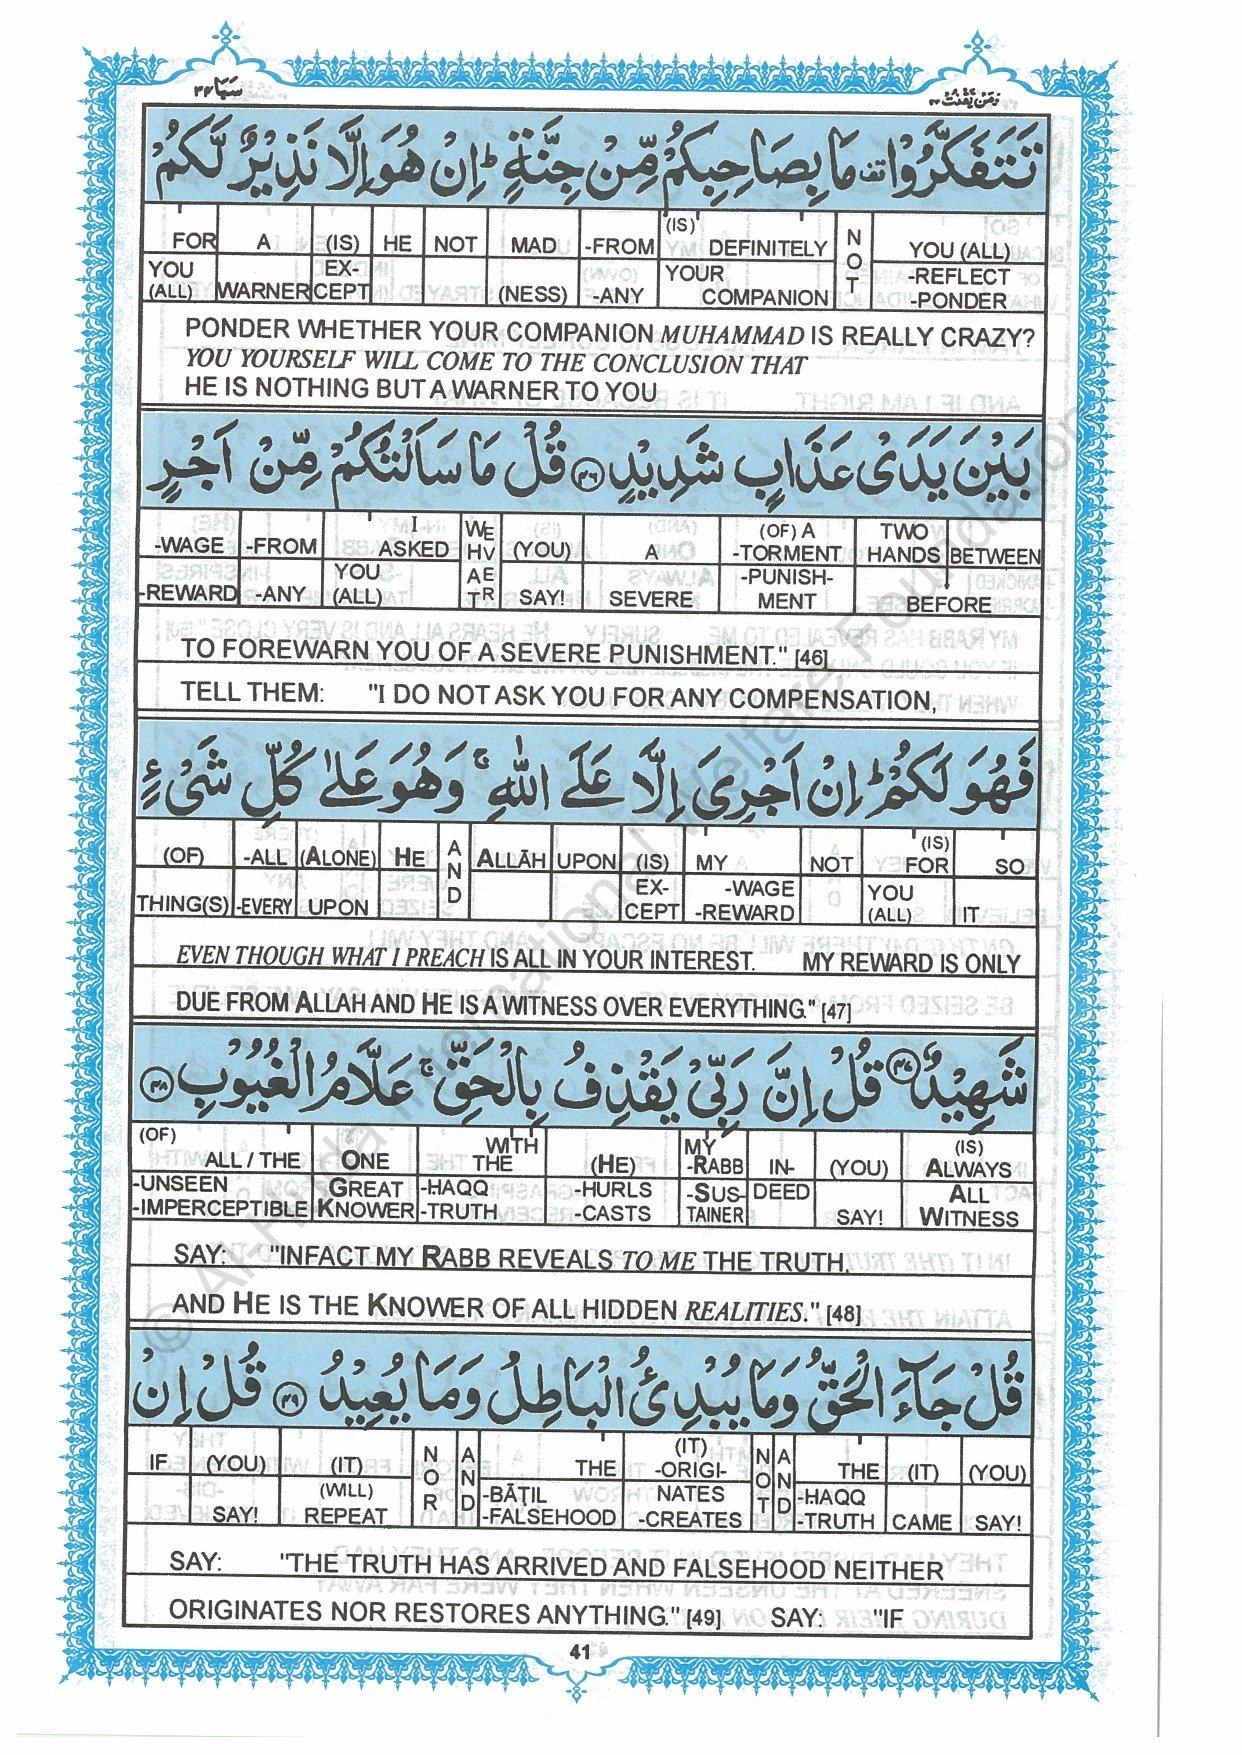 سَبَا ٣٤
وَمَنْ يَّقْنُتْ ٢٢
تَتَفَكَّرُوْا مَا بِصَاحِبِكُمْ مِّنْ جِنَّةٍ ؕ اِنْ هُوَ اِلَّا نَذِيْرٌ لَّكُمْ
FOR A (IS) HE NOT MAD -FROM (IS) DEFINITELY NOT YOU (ALL)
YOU (ALL) WARNER EX-CEPT (NESS) -ANY YOUR COMPANION -REFLECT -PONDER
PONDER WHETHER YOUR COMPANION MUHAMMAD IS REALLY CRAZY?
YOU YOURSELF WILL COME TO THE CONCLUSION THAT
HE IS NOTHING BUT A WARNER TO YOU
بَيْنَ يَدَىْ عَذَابٍ شَدِيْدٍ ﴿٤٦﴾ قُلْ مَا سَاَلْتُكُمْ مِّنْ اَجْرٍ
-WAGE -FROM I ASKED WHATEVER (YOU) A (OF) A -TORMENT TWO HANDS BETWEEN
-REWARD -ANY YOU (ALL) SAY! SEVERE -PUNISH-MENT BEFORE
TO FOREWARN YOU OF A SEVERE PUNISHMENT." [46]
TELL THEM: "I DO NOT ASK YOU FOR ANY COMPENSATION,
فَهُوَ لَكُمْ ؕ اِنْ اَجْرِىَ اِلَّا عَلَى اللّٰهِ ۚ وَهُوَ عَلٰى كُلِّ شَىْءٍ
(OF) -ALL (ALONE) HE AND ALLĀH UPON (IS) MY NOT (IS) FOR SO
THING(S) -EVERY UPON EX-CEPT -WAGE -REWARD YOU (ALL) IT
EVEN THOUGH WHAT I PREACH IS ALL IN YOUR INTEREST. MY REWARD IS ONLY
DUE FROM ALLAH AND HE IS A WITNESS OVER EVERYTHING." [47]
شَهِيْدٌ ﴿٤٧﴾ قُلْ اِنَّ رَبِّىْ يَقْذِفُ بِالْحَقِّ ۚ عَلَّامُ الْغُيُوْبِ ﴿٤٨﴾
(OF) ALL / THE ONE WITH THE (HE) MY -RABB IN- (YOU) (IS) ALWAYS
-UNSEEN -IMPERCEPTIBLE GREAT KNOWER -ḤAQQ -TRUTH -HURLS -CASTS -SUS-TAINER DEED SAY! ALL WITNESS
SAY: "INFACT MY RABB REVEALS TO ME THE TRUTH,
AND HE IS THE KNOWER OF ALL HIDDEN REALITIES." [48]
قُلْ جَآءَ الْحَقُّ وَمَا يُبْدِئُ الْبَاطِلُ وَمَا يُعِيْدُ ﴿٤٩﴾ قُلْ اِنْ
IF (YOU) (IT) NOR AND THE (IT) -ORIGI- NOT AND THE (IT) (YOU)
SAY! (WILL) REPEAT -BĀṬIL -FALSEHOOD NATES -CREATES -ḤAQQ -TRUTH CAME SAY!
SAY: "THE TRUTH HAS ARRIVED AND FALSEHOOD NEITHER
ORIGINATES NOR RESTORES ANYTHING." [49] SAY: "IF
41
© Al-Huda International Welfare Foundation